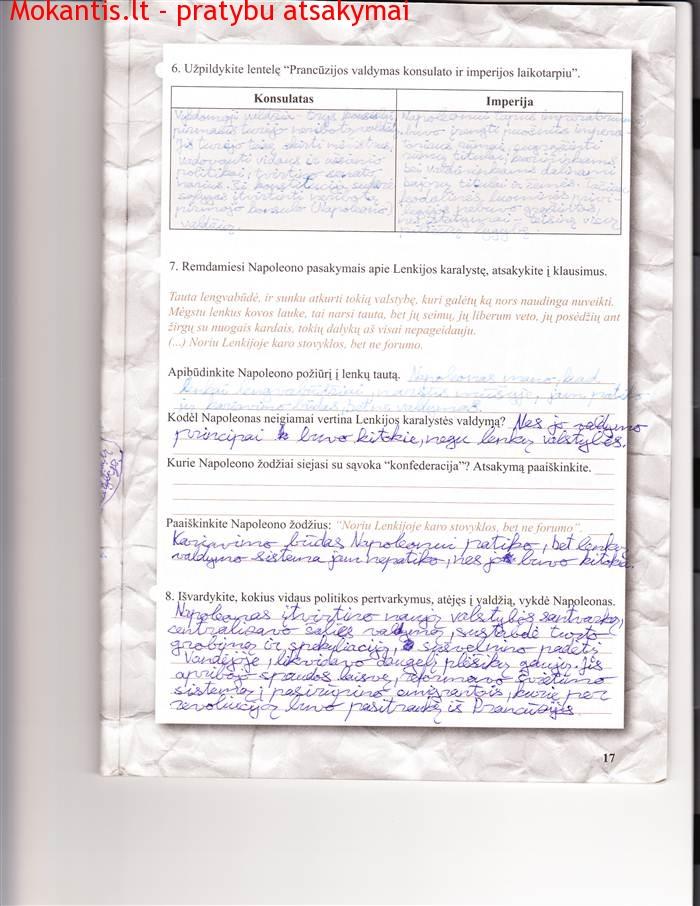 Mokantis.lt - pratybu atsakymai
6. Užpildykite lentelę “Prancūzijos valdymas konsulato ir imperijos laikotarpiu”.
Konsulatas
Imperija
Vykdomoji valdžia - trys konsulai,
pirmasis turėjo neribotą valdžią
Jis turėjo teisę skirti ministrus,
vadovauti vidaus ir užsienio
politikai, tvirtino senato
narius. Ši konstitucija sudarė
sąlygas įtvirtinti neribotą
pirmojo konsulo (Napoleono)
valdžią.
Napoleonui tapus imperatoriumi,
buvo įrengti puošnūs impera-
toriaus rūmai, sugrąžinti
bei valdininkams dalinami
bajorų titulai ir žemės. Tačiau
feodalinės, luominės privi-
legijos nebuvo grąžintos
7. Remdamiesi Napoleono pasakymais apie Lenkijos karalystę, atsakykite į klausimus.
Tauta lengvabūdė, ir sunku atkurti tokią valstybę, kuri galėtų ką nors naudinga nuveikti.
Mėgstu lenkus kovos lauke, tai narsi tauta, bet jų seimų, jų liberum veto, jų posėdžių ant
žirgų su nuogais kardais, tokių dalykų aš visai nepageidauju.
(...) Noriu Lenkijoje karo stovyklos, bet ne forumo.
Apibūdinkite Napoleono požiūrį į lenkų tautą. Napoleonas mano, kad
lenkai lengvabūdžiai, narsūs mūšyje, jam patiko
jų kariavimo būdas, bet ne valdymas.
Kodėl Napoleonas neigiamai vertina Lenkijos karalystės valdymą? Nes jo valdymo
principai buvo kitokie, negu lenkų valstybės.
Kurie Napoleono žodžiai siejasi su sąvoka “konfederacija”? Atsakymą paaiškinkite.
Paaiškinkite Napoleono žodžius: “Noriu Lenkijoje karo stovyklos, bet ne forumo”.
Kariavimo būdas Napoleonui patiko, bet lenkų
valdymo sistema jam nepatiko, nes jo buvo kitokia.
8. Išvardykite, kokius vidaus politikos pertvarkymus, atėjęs į valdžią, vykdė Napoleonas.
Napoleonas įtvirtino naują valstybės santvarką,
centralizavo šalies valdymą, sustabdė turto
grobimą ir spekuliaciją, sušvelnino padėtį
Vandėjoje, likvidavo daugelį plėšikų gaujų. Jis
apribojo spaudos laisvę, reformavo švietimo
sistemą į pasirūpino emigrantais, kurie per
revoliuciją buvo pasitraukę iš Prancūzijos.
17